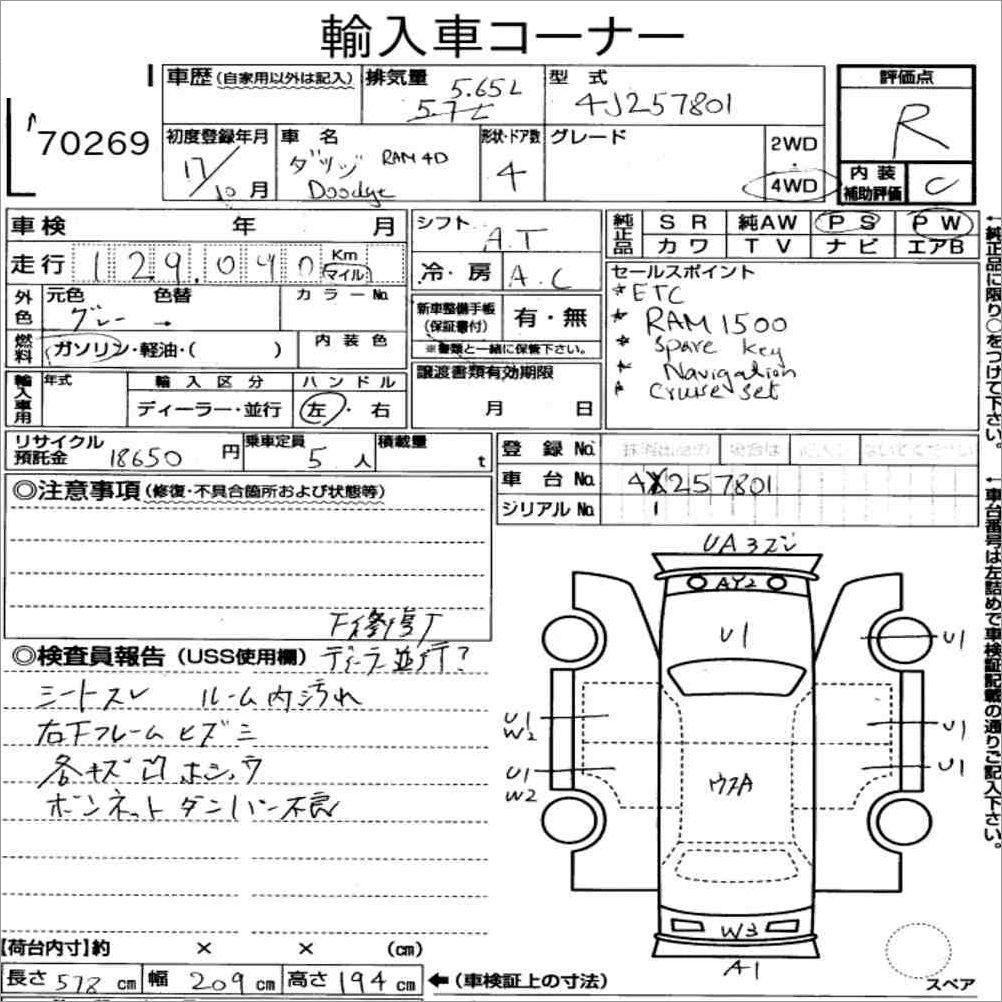 輸入車コーナー
70269
車歴(自家用以外は記入)
排気量 5.65L
5.7L
型式
4J257801
評価点
R
初度登録年月
17/10月
車名
ダッヂ RAM 4D
Doodge
形状・ドア数
4
グレード
2WD
・
4WD
内装
補助評価
C
車検 年 月
シフト
A.T
純正品
SR 純AW PS PW
カワ TV ナビ エアB
走行 129.040 Km
マイル
冷・房 A.C
セールスポイント
*ETC
* RAM 1500
* Spare key
* Navigation
* Cruise set
外色
元色 色替 カラーNo.
グレー →
新車整備手帳
(保証書付)
有・無
※書類と一緒に保管下さい。
燃料
ガソリン・軽油・( )
内装色
輸入車用
年式
輸入区分
ハンドル
ディーラー・並行
左・右
譲渡書類有効期限
月 日
←純正品に限り○をつけて下さい。
リサイクル
預託金 18650 円
乗車定員
5 人
積載量
t
登録No.
車台No. 4J257801
シリアルNo.
←車台番号は左詰めで車検証記載の通りご記入下さい。
◎注意事項(修復・不具合箇所および状態等)
◎検査員報告(USS使用欄)
ディーラー並行?
シートスレ ルーム内汚れ
右下フレームヒズミ
各キズ凹ホシュウ
ボンネットダンパー不良
UA3ズミ
AY2
U1
U1
U1
W2
U1
U1
W2
U1
ウスA
W3
A1
スペア
【荷台内寸】約 × × (cm)
長さ 578 cm 幅 209 cm 高さ 194 cm ←(車検証上の寸法)